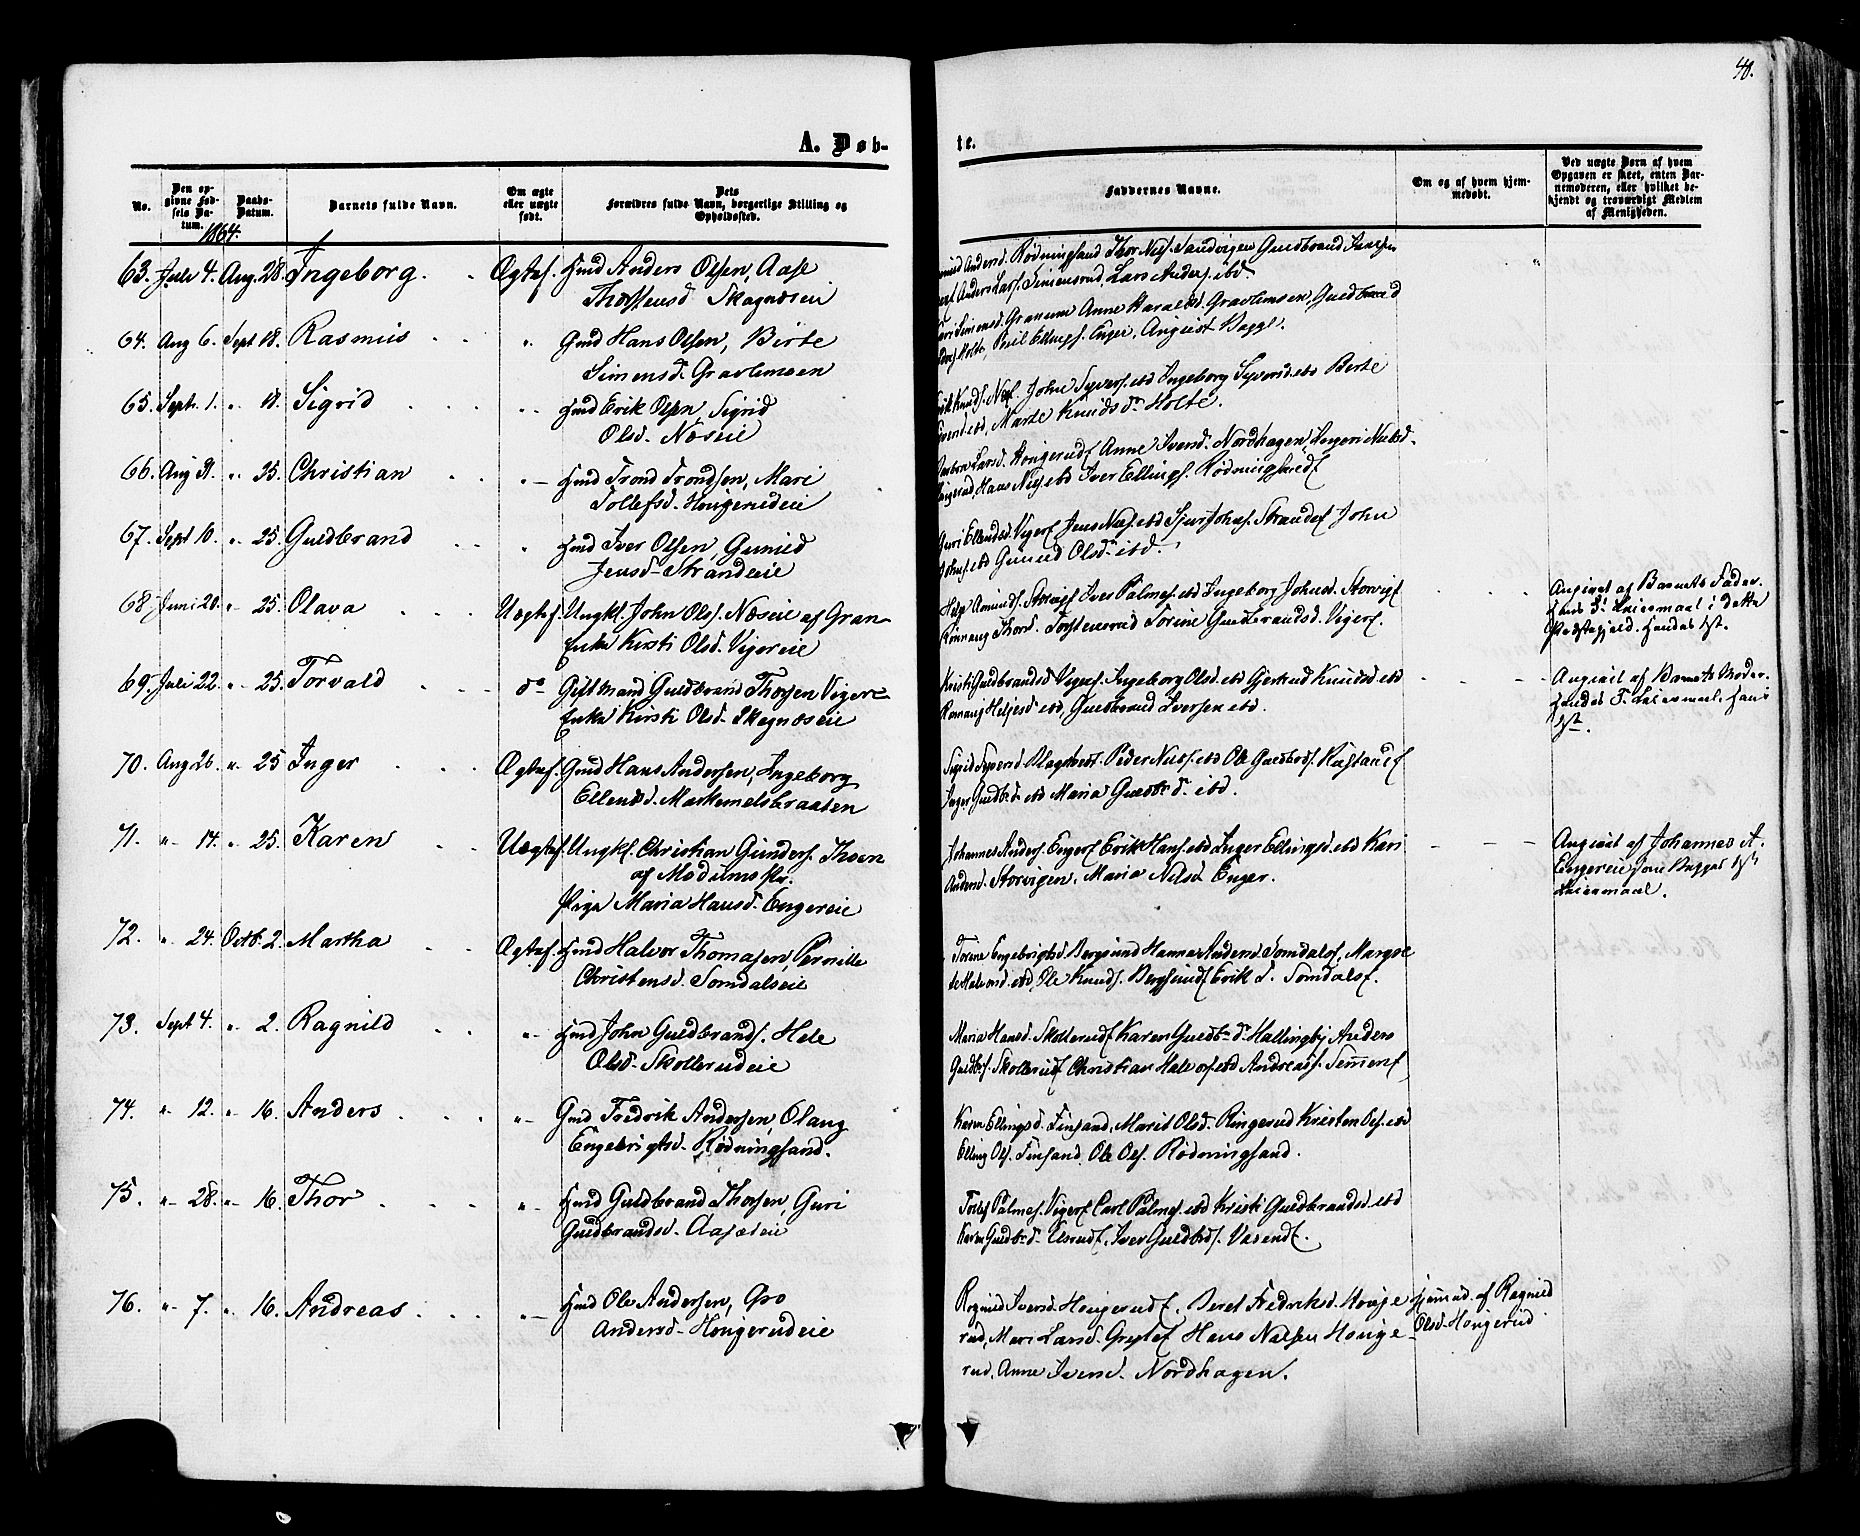 40.
A. Døb-
te.
No.
Den op-
givne Fød-
sels Da-
tum.
Daabs-
Datum.
Barnets fulde Navn.
Om ægte
eller uægte
født.
Dets
Forældres fulde Navn, borgerlige Stilling og
Opholdssted.
Faddernes Navne.
Om og af hvem hjem-
medøbt.
Ved uægte Børn af hvem
Opgaven er skeet, enten Bar-
nemoderen, eller hvilket be-
kjendt og troværdigt Medlem
af Menigheden.
1864.
63. Juli 4. Aug. 28. Ingeborg. Ægtef. Hmd Anders Olsen, Aase
Thorstensd Skagnæseie
Andersd. Rødningsand Thor Niels. Sandvigen Guldbrand
Anders Lars. Simensrud, Lars Anders. ibd.
64. Aug 6. Sept 18. Rasmus " Gmd Hans Olsen, Birte
Simensd. Gravlimoen
Simensd. Granum Anne Haraldsd. Gravlimoen, Guldbrand
Holte, Ellings. Enger, August Bagge.
65. Sept. 1. " 18. Sigrid " Hmd Erik Olsen, Sigrid
Olsd. Næseie
Knuds. Næs. John Syvers. ibd Ingeborg Syversd. ibd Berte
ibd, Marte Knudsdr Holte.
66. Aug 31. " 25. Christian " Hmd Trond Trondsen, Mari
Tollefsd. Hougerudeie
Larsd. Hougerud Anne Iversd. Nordhagen, Nielsd.
Hans Niels. ibd Iver Ellings. Rødningsand
67. Sept 10. " 25. Guldbrand " Hmd Iver Olsen, Gunild
Jensd. Strandeie
Guri Ellendsd. Viger Jens Niels. ibd Sjur Johns. Strande John
Johns. ibd Gunild Olsdr ibd.
68. Juni 20. " 25. Olava Uægtef. Ungkl. John Ols. Næseie af Gran
Enke Kirsti Olsd. Vigereie
Amunds. Storvig Iver Palmes. ibd Ingeborg Johnsd. Storvig
Rønnaug Thord. Torstensrud Torine Guldbrandsd. Viger
Angivet af Barnets Fader.
Hans 3die Leiermaal i dette
Præstegjeld. Hendes 1ste.
69. Juli 22. " 25. Torvald do Gift Mand Guldbrand Thorsen Vigere
Enke Kirsti Olsd. Skagnæseie
Kristi Guldbrandsd Viger. Ingeborg Olsd. ibd Gjertrud Knudsd ibd
Rønnaug Helgesd ibd, Guldbrand Iversen ibd.
Angivet af Barnets Moder.
Hendes Leiermaal. Hans
1ste.
70. Aug. 26. " 25 Inger Ægtef. Gmd Hans Andersen, Ingeborg
Ellendsd. Markmelsbraaten
Sigrid Syversd Peder Niels. ibd Ole Guldbds.
Inger Guldbrd. ibd Maria Guldbrdr ibd.
71. " 14. " 25. Karen Uægtef. Ungkl. Christian Gunders. Thoen
af Modums Pr.
Pige Maria Hansd. Engereie
Johannes Anders. Enger Erik Hans. ibd Inger Ellingsd. ibd Kari
Andersd. Storvigen, Maria Nilsd. Enger.
Angivet af Johannes A.
Engereie Begges 1ste
Leiermaal.
72. " 24. Octb. 2. Martha Ægtef. Hmd Halvor Thomasen, Pernille
Christensd. Somdalseie
Torine Engebrigtsd. Bergsund Hanna Andersd Somdals, Margre
te Halvorsd ibd, Ole Knuds. Bergsund Erik Somdals.
73. Sept 4. " 2. Ragnild " Hmd John Guldbrands. Hele
Olsd. Skollerudeie
Maria Hansd. Skollerud Karen Guldbrdr Hallingby Anders
Guldbs. Skollerud Christian Halvors. ibd Andreas
74. " 12. " 16. Anders " Gmd Fredrik Andersen, Olaug
Engebrigtsd. Rødningsand.
Karen Ellingsd. Finsand, Marit Olsd. Ringerud Kristen Ols. ibd
Elling Ols. Finsand, Ole Ols. Rødningsand.
75. " 28. " 16. Thor " Hmd Guldbrand Thorsen, Guri
Guldbrandsd. Aasæteie
Palmes. Viger Carl Palmes. ibd Kristi Guldbrandsd ibd
Karen Guldbrd. Iver Guldbds. Vasend.
76. " 7. " 16. Andreas " Hmd Ole Andersen, Gro
Andersd. Hougerudeie
Ragnild Iversd. Hougerud, Beret Fredriksd. Houge
rud, Mari Larsd. Hans Nielsen Houge
rud, Anne Iversd. Nordhagen.
Hjemmed. af Ragnild
Olsd. Hougerud